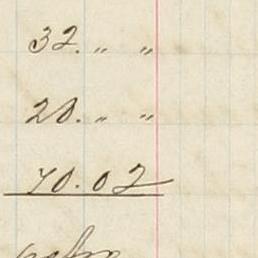 32. " "
20. " "
70.02